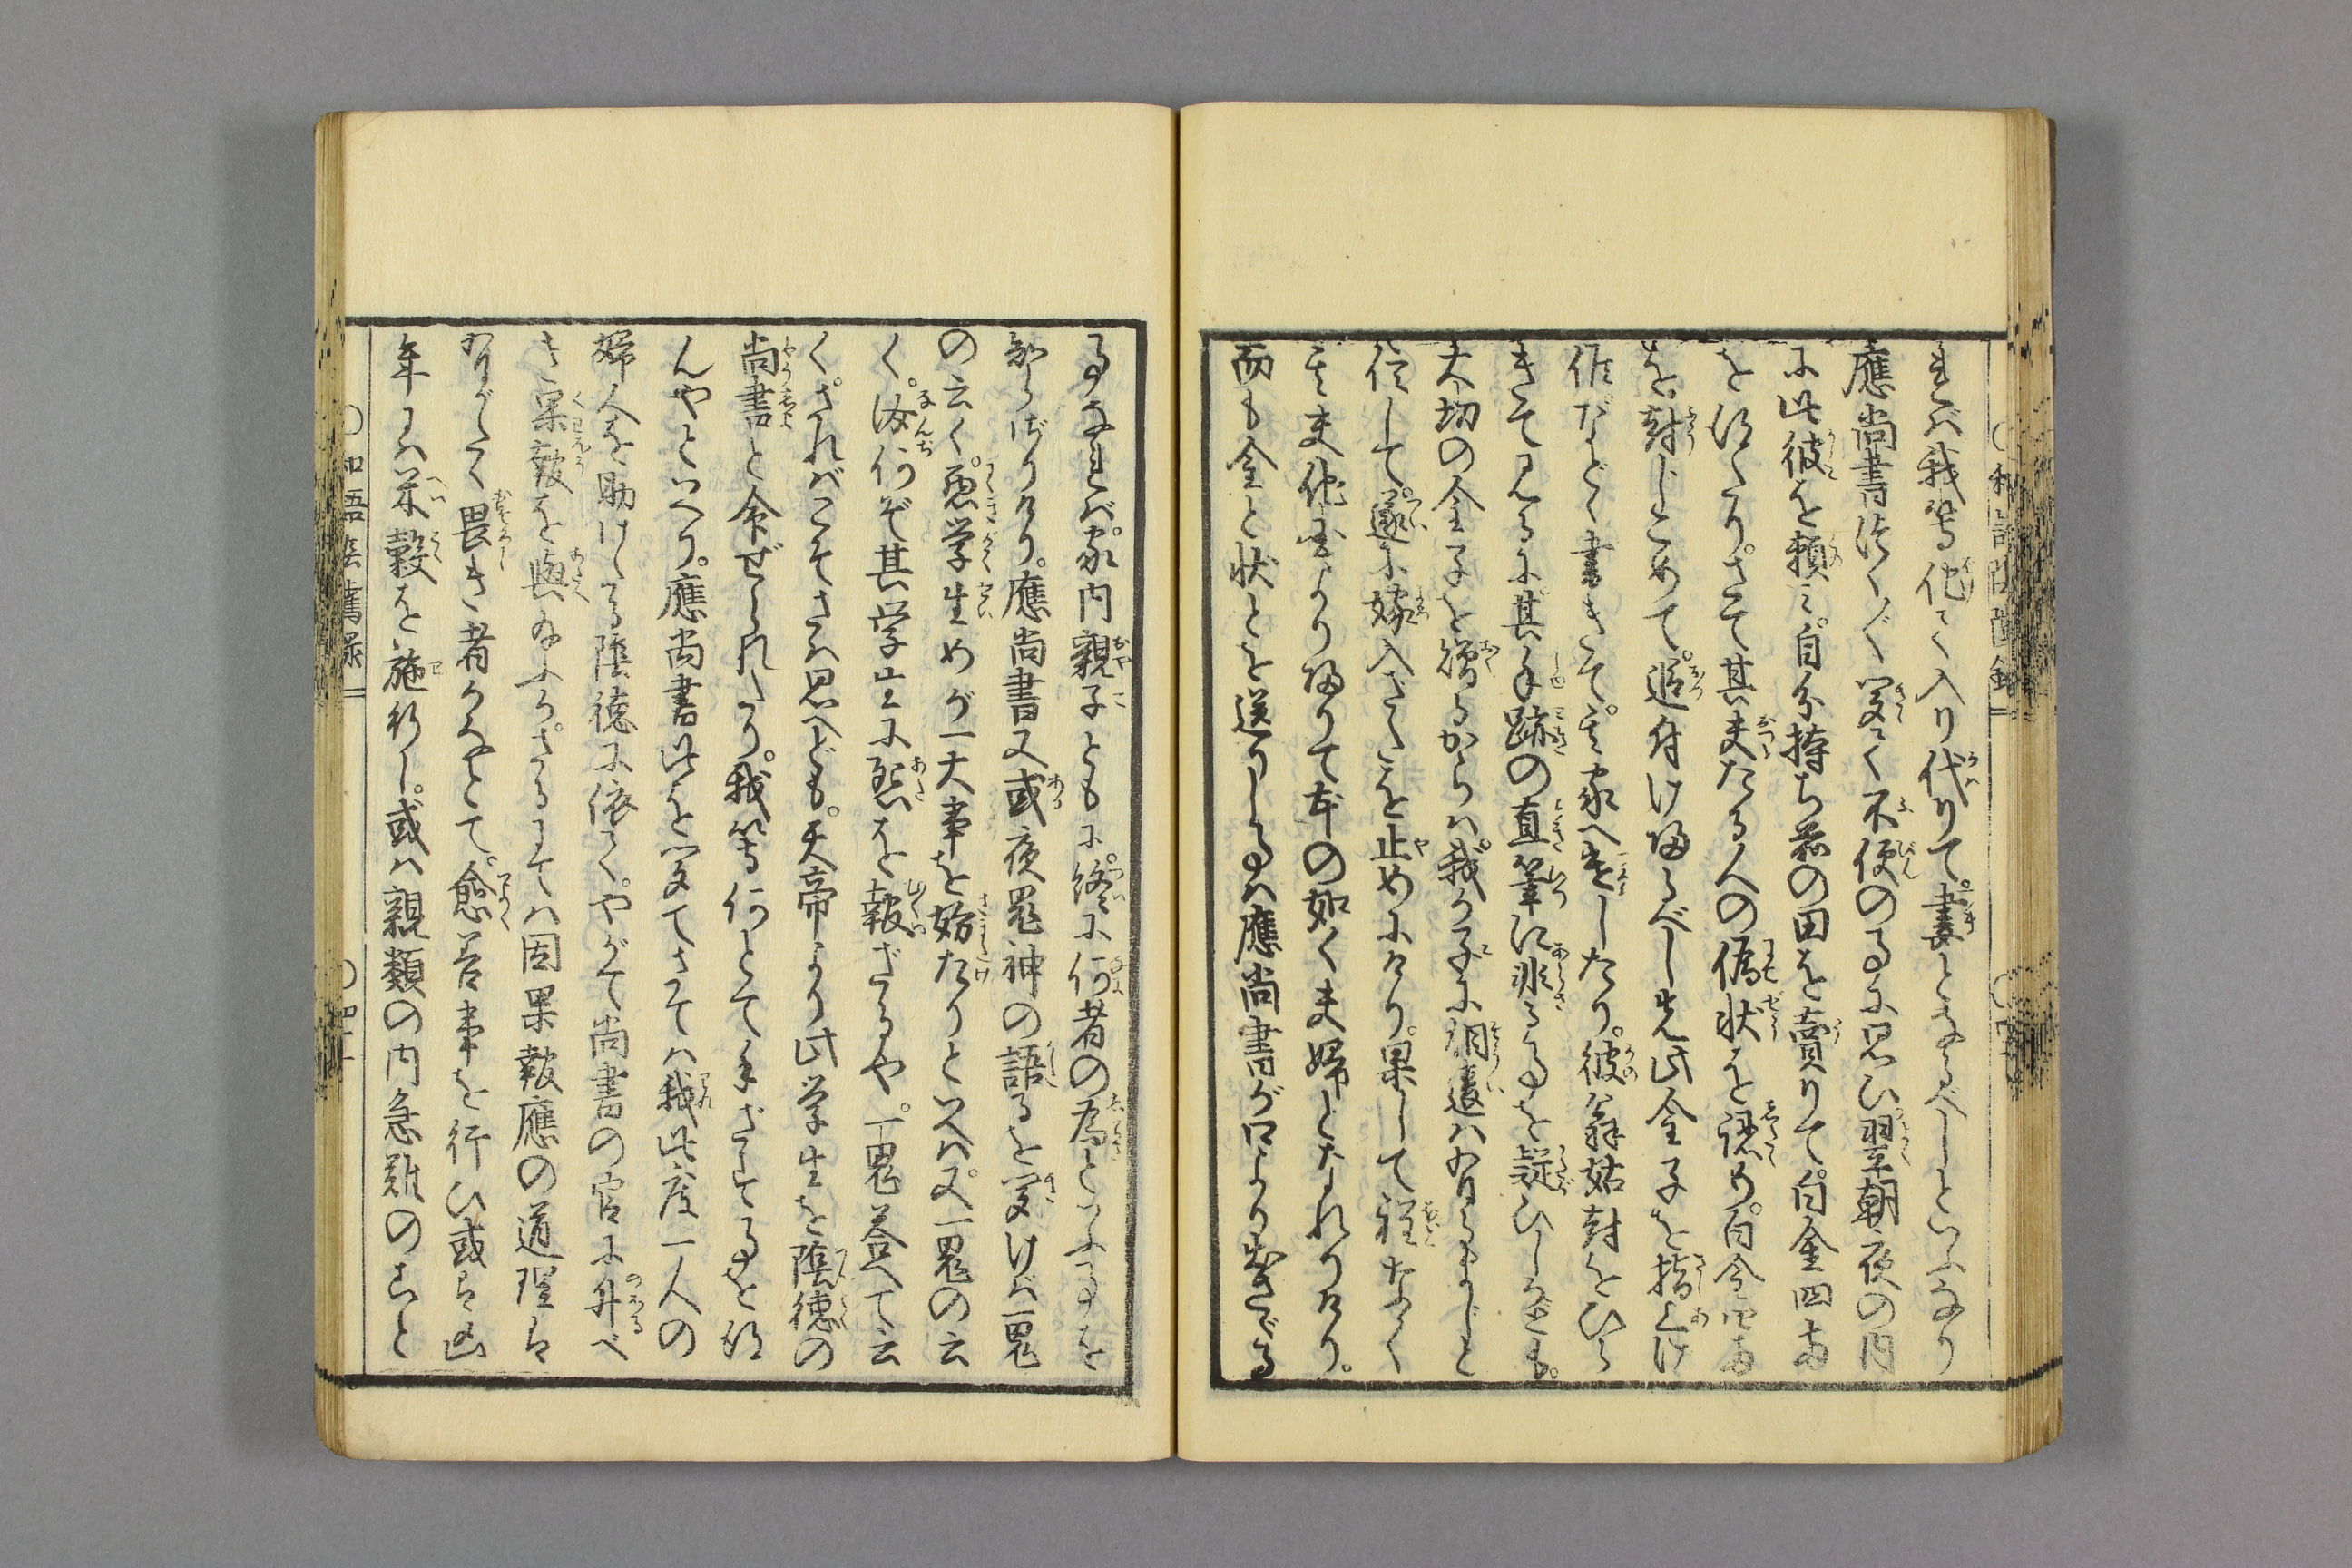 れバ我等化て入り代りて。妻となるべしといふなり
應尚書つく〴〵聞て不便の事に思ひ翌朝夜の内
に此彼を頼ミ。自分持ち前の田を賣りて。白金四両
を得たり。さて其夫たる人の偽状を認め。白金四両
を。封じこめて。追付け帰るべし先此金子を指上げ
候などゝ書きて。其家へ遣したり。彼翁姑封をひら
きて見るに其手跡の直筆に非る事を疑ひしかども。
大切の金子を贈るからハ。我子に相違ハ有るまじと
信して。遂に嫁入さする を止めにけり。果して程なく
其夫他国より帰りて本の如く夫婦となれりけり。
而も金と状とを送りし事ハ應尚書が口より出さざる
事なれバ。家内親子ともに。終に何者の為といふ事を
知らざりけり。應尚書又或夜鬼神の語るを聞けバ一鬼
の云く。悪学生めが一大事を妨たりといへバ又一鬼の云
く。汝何ぞ其学生に怨を報ざるや。一鬼答へて云
く。されバこそさハ思へども。天帝より此学生を陰徳の
尚書と命ぜられたり。我等何とて手ざする事を得
んやといへり。應尚書此を聞てさてハ我此度一人の
婦人を助けたる陰徳に依て。やがて尚書の官に升べ
き果報を與給ふか。さるにてハ因果報應の道理ハ
有がたく畏き者かなとて。愈善事を行ひ或ハ凶
年にハ米穀を施行し。或ハ親類の内急難のこと